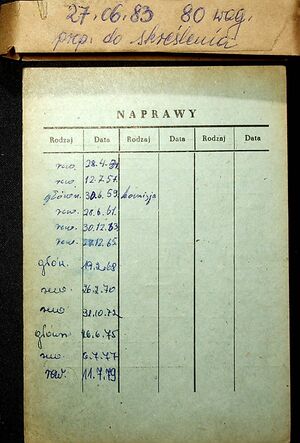 27.06.83 80 wag.
prop. do skreślenia
NAPRAWY
Rodzaj Data Rodzaj Data Rodzaj Data
rew. 28.4.
rew. 12.7.57.
główn. 30.6.59. komisja
rew. 28.6.61.
rew. 30.12.63
rew. 12.65.
głów. 19.2.68
rew 26.2.70
rew 31.10.72
główn. 26.6.75
rew. 6.7.77
rew. 11.7.79